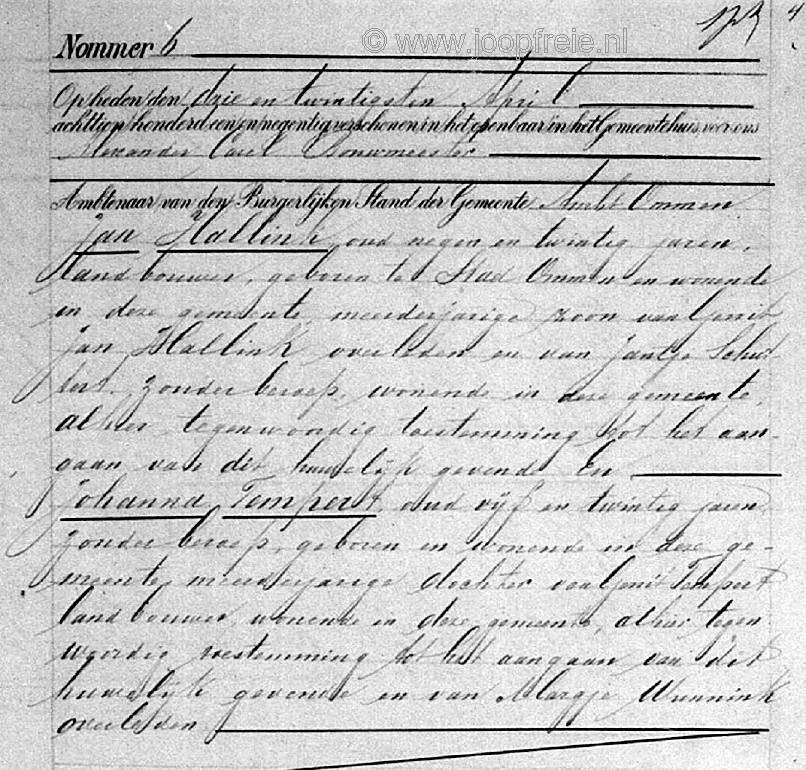 © www.joopfreie.nl
4
Nommer 6
Op heden den drie en twintigsten April
achttien honderd een en negentig verschenen in het openbaar in het Gemeentehuis, voor ons
Alexander Carel Bouwmeester
Ambtenaar van den Burgerlijken Stand der Gemeente Ambt Ommen
Jan Hallink, oud negen en twintig jaren,
landbouwer, geboren te Stad Ommen en wonende
in deze gemeente, meerderjarige zoon van Gerrit
Jan Hallink overleden en van Jantje
zonder beroep, wonende in deze gemeente,
alhier tegenwoordig toestemming tot het aan-
gaan van dit huwelijk gevende En
Johanna Tempert, oud vijf en twintig jaren,
zonder beroep, geboren en wonende in deze ge-
meente, meerderjarige dochter van Gerrit Tempert
landbouwer, wonende in deze gemeente, alhier tegen
woordig toestemming tot het aangaan van dit
huwelijk gevende en van Margje Wennink
overleden